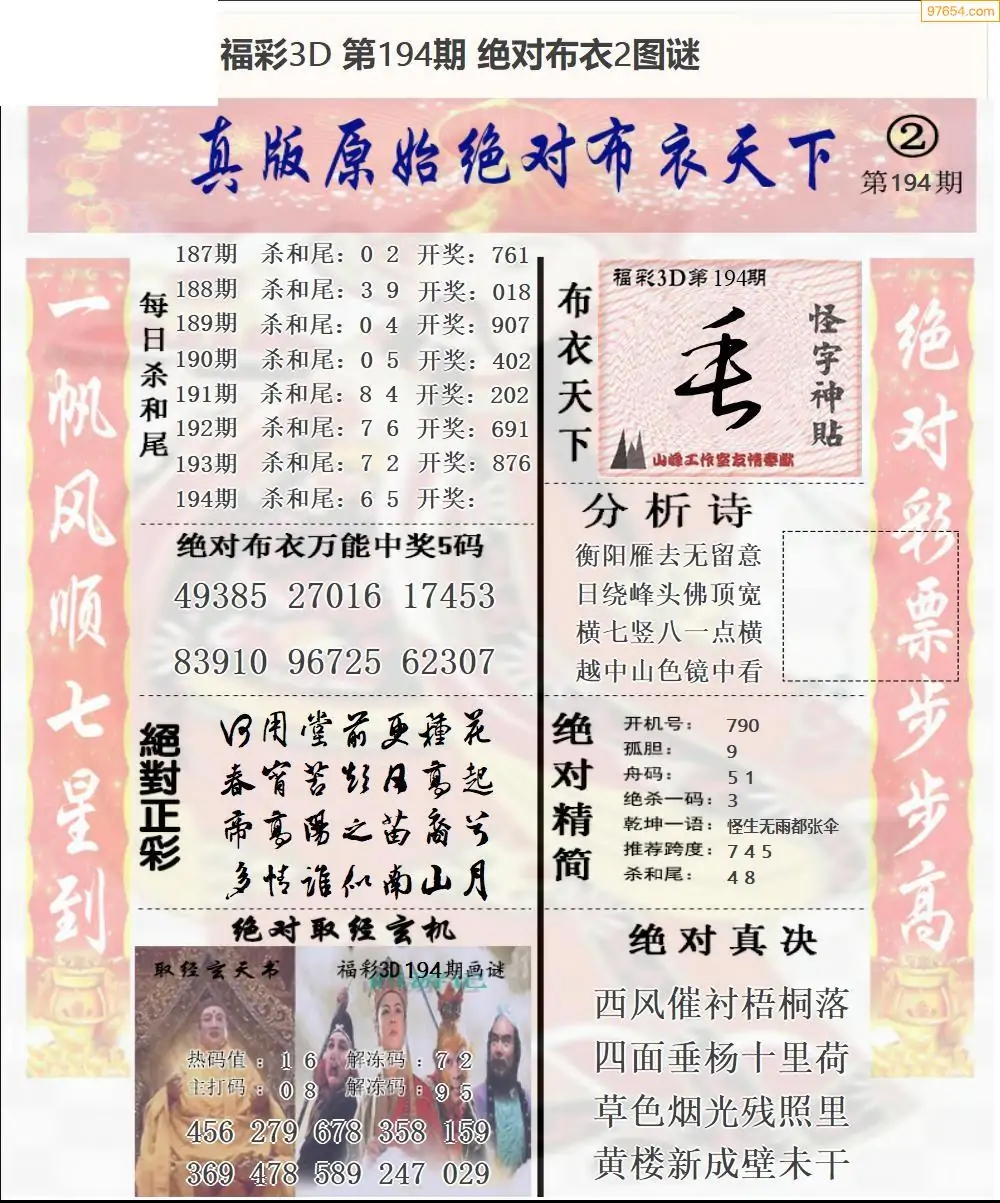 97654.com
福彩3D 第194期 绝对布衣2图谜
真版原始绝对布衣天下
②
第194期
一帆风顺七星到
每日杀和尾
187期 杀和尾：0 2 开奖：761
188期 杀和尾：3 9 开奖：018
189期 杀和尾：0 4 开奖：907
190期 杀和尾：0 5 开奖：402
191期 杀和尾：8 4 开奖：202
192期 杀和尾：7 6 开奖：691
193期 杀和尾：7 2 开奖：876
194期 杀和尾：6 5 开奖：
绝对布衣万能中奖5码
49385 27016 17453
83910 96725 62307
絕對正彩
何用堂前更種花
春宵苦短日高起
帝高陽之苗裔兮
多情誰似南山月
绝对取经玄机
取经玄天书
福彩3D194期画谜
热码值：1 6 解冻码：7 2
主打码：0 8 解冻码：9 5
456 279 678 358 159
369 478 589 247 029
布衣天下
福彩3D第194期
怪字神貼
山峰工作室友情奉献
分析诗
衡阳雁去无留意
日绕峰头佛顶宽
横七竖八一点横
越中山色镜中看
绝对精简
开机号：790
孤胆：9
舟码：5 1
绝杀一码：3
乾坤一语：怪生无雨都张伞
推荐跨度：7 4 5
杀和尾：4 8
绝对真决
西风催衬梧桐落
四面垂杨十里荷
草色烟光残照里
黄楼新成壁未干
绝对彩票步步高